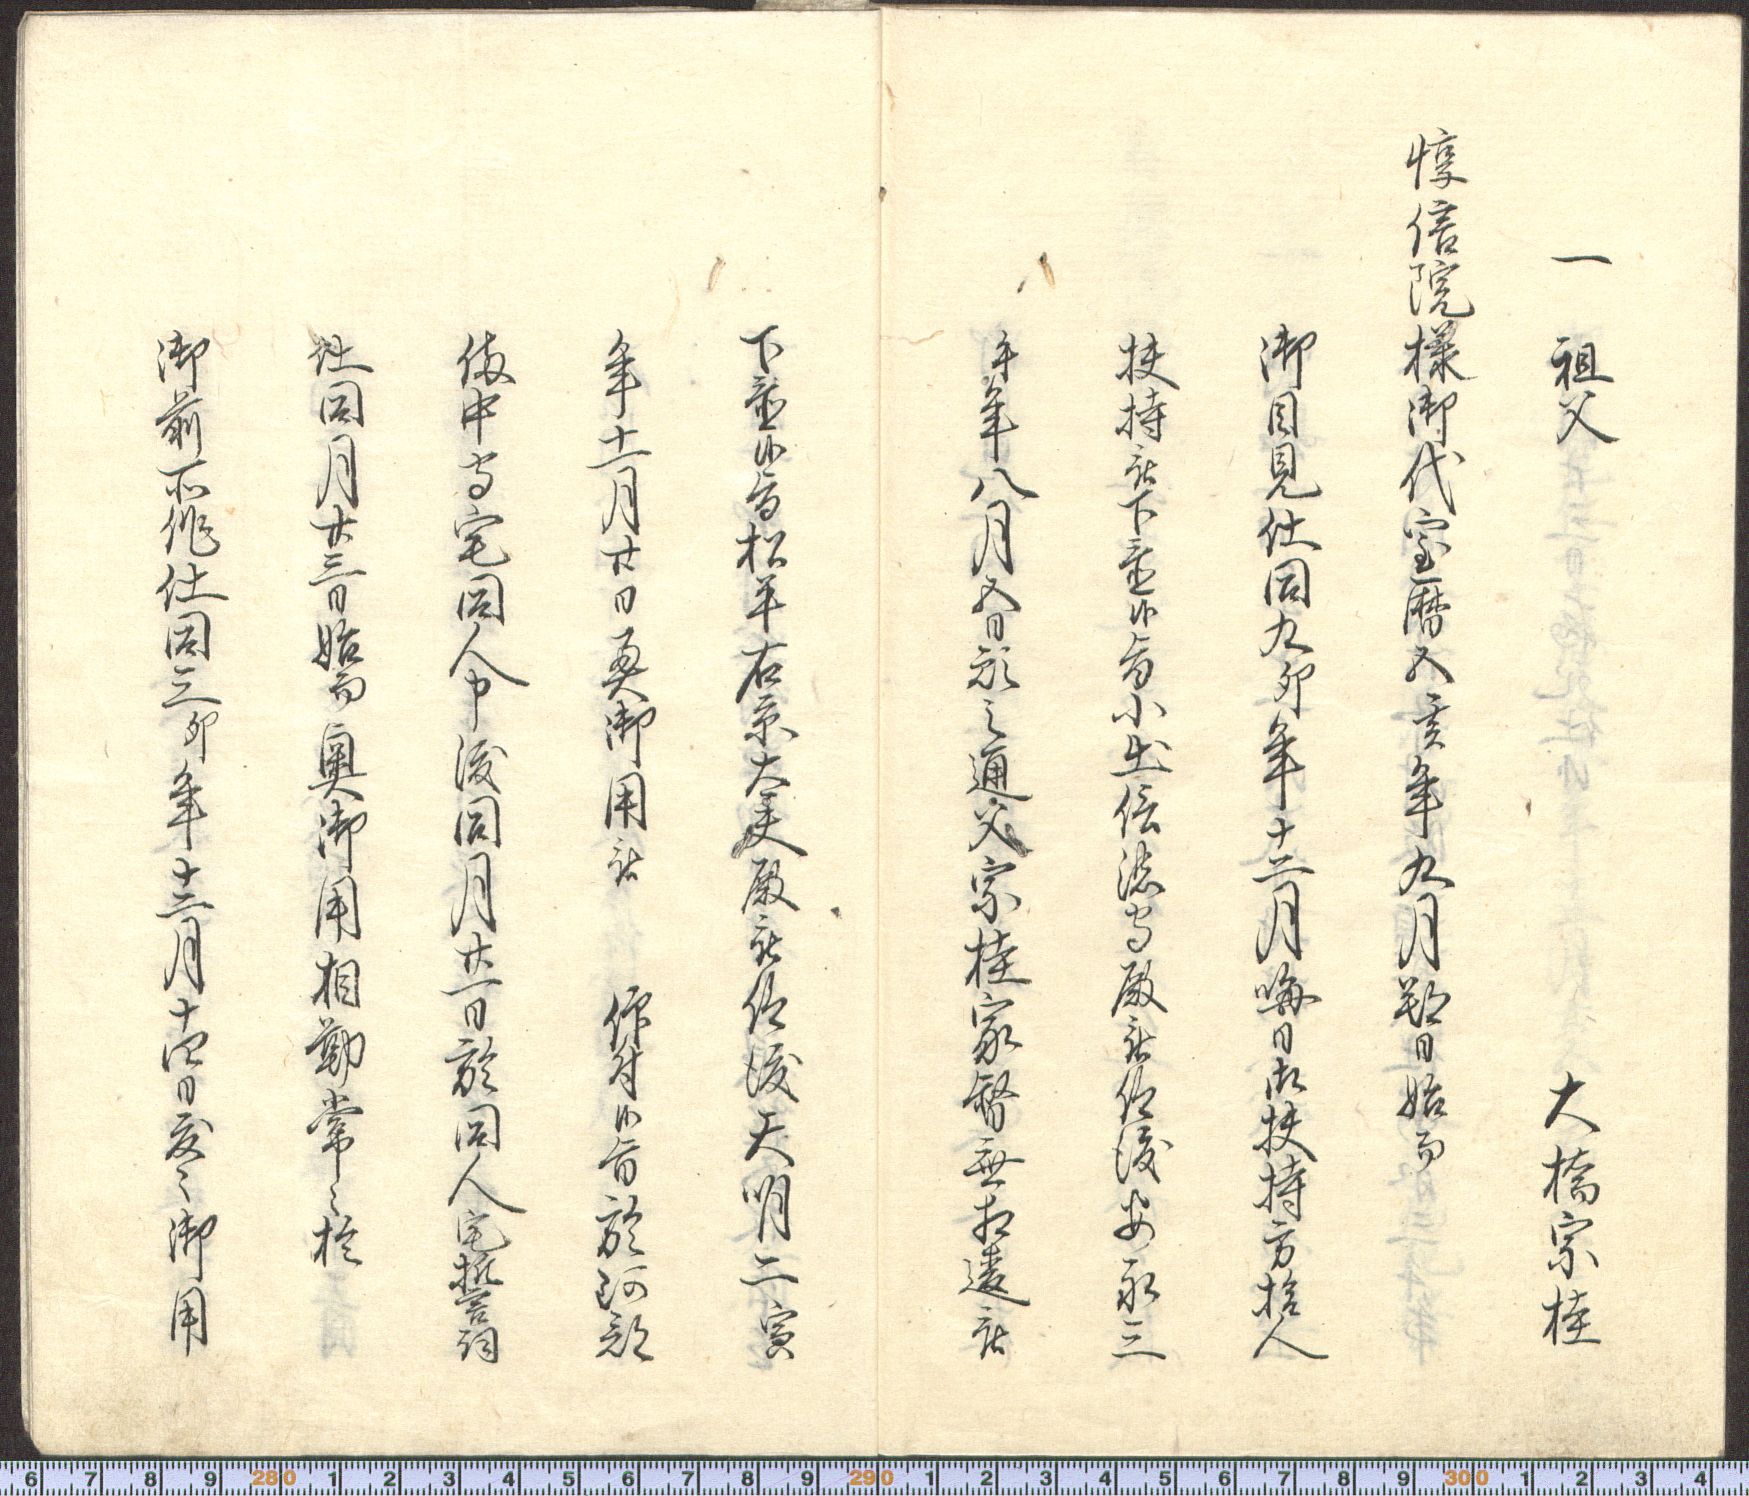 一 祖父 大橋宗桂
惇信院様御代宝暦五亥年九月朔日始而
御目見仕同九卯年十二月晦日御扶持方拾人
扶持被下置候旨小出信濃守殿被仰渡安永三
午年八月五日願之通父宗桂家督無相違被
下置候旨松平右京大夫殿被仰渡天明二寅
年十一月廿日奥御用被 仰付候旨於阿部
備中守宅同人申渡同月廿一日於同人宅誓詞
仕同月廿三日始而奥御用相勤常々於
御前不作仕同三卯年十二月十四日度々御用